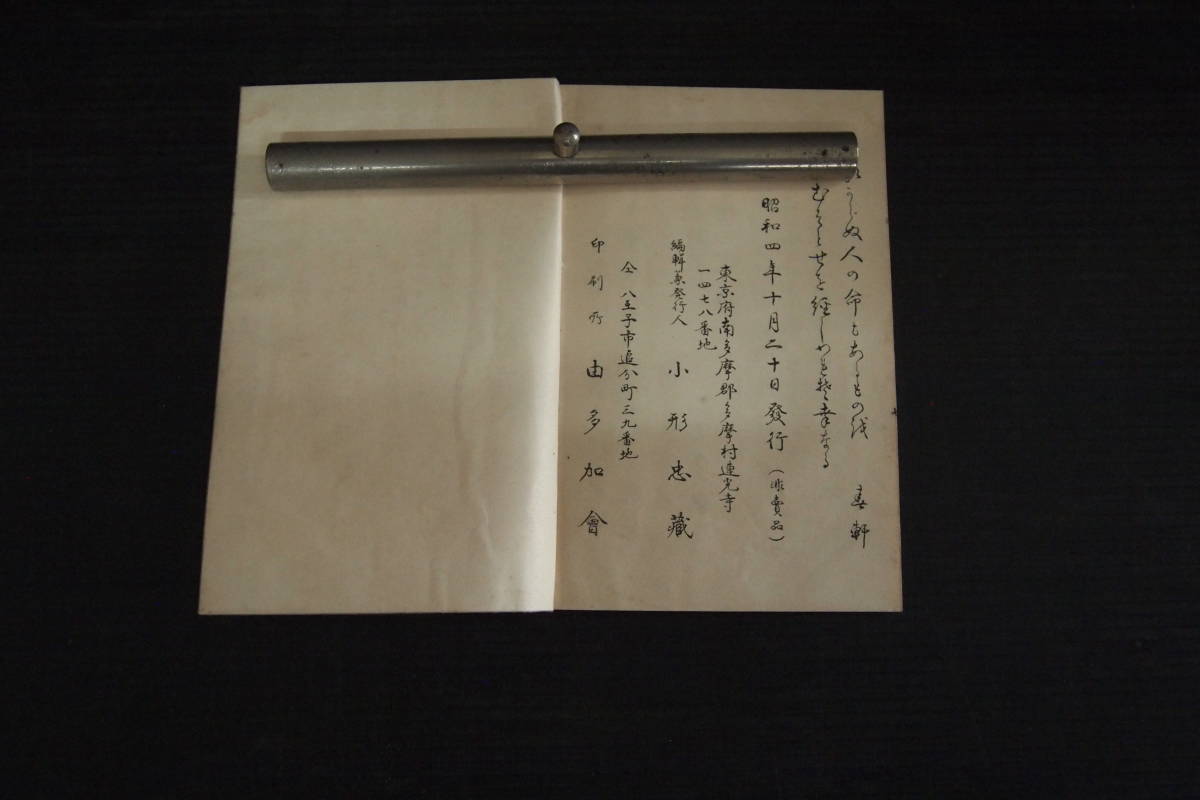 ぬ人の命もあしもの哉
喜軒
せを経し
昭和四年十月二十日發行（非賣品）
東京府南多摩郡多摩村連光寺
一四七八番地
編輯兼発行人　小形忠藏
仝　八王子市追分町三九番地
印刷所　由多加會